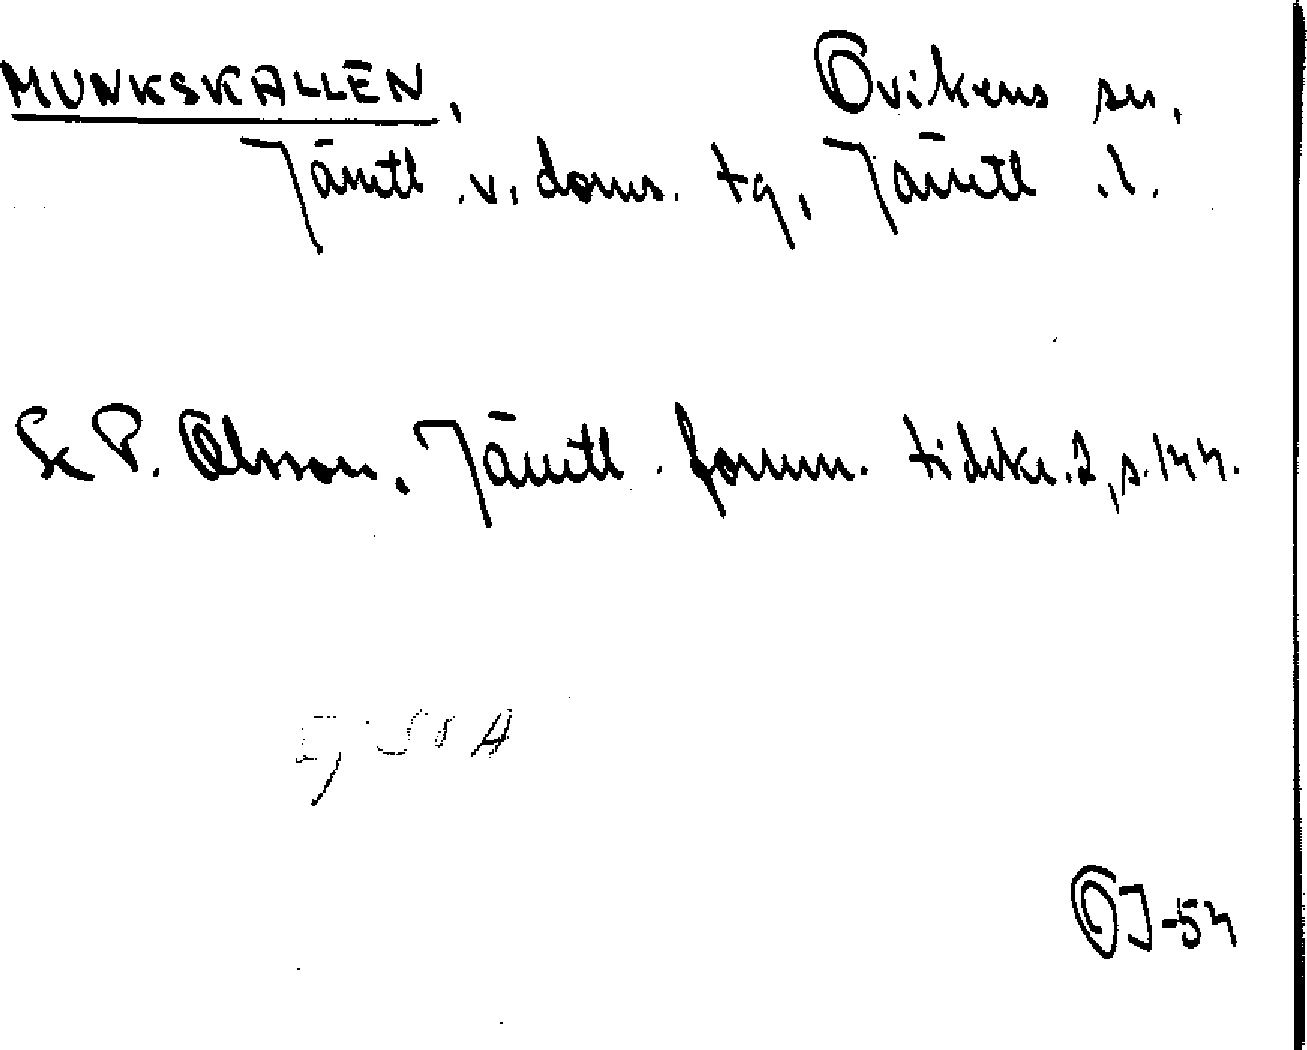 MUNKSKALLEN, Ovikens sn,
Jämtl. v. doms. tg, Jämtl. l.
P. Olsson, Jämtl. fornm. tidskr. 2, s. 144.
Ej SOA
OJ-54